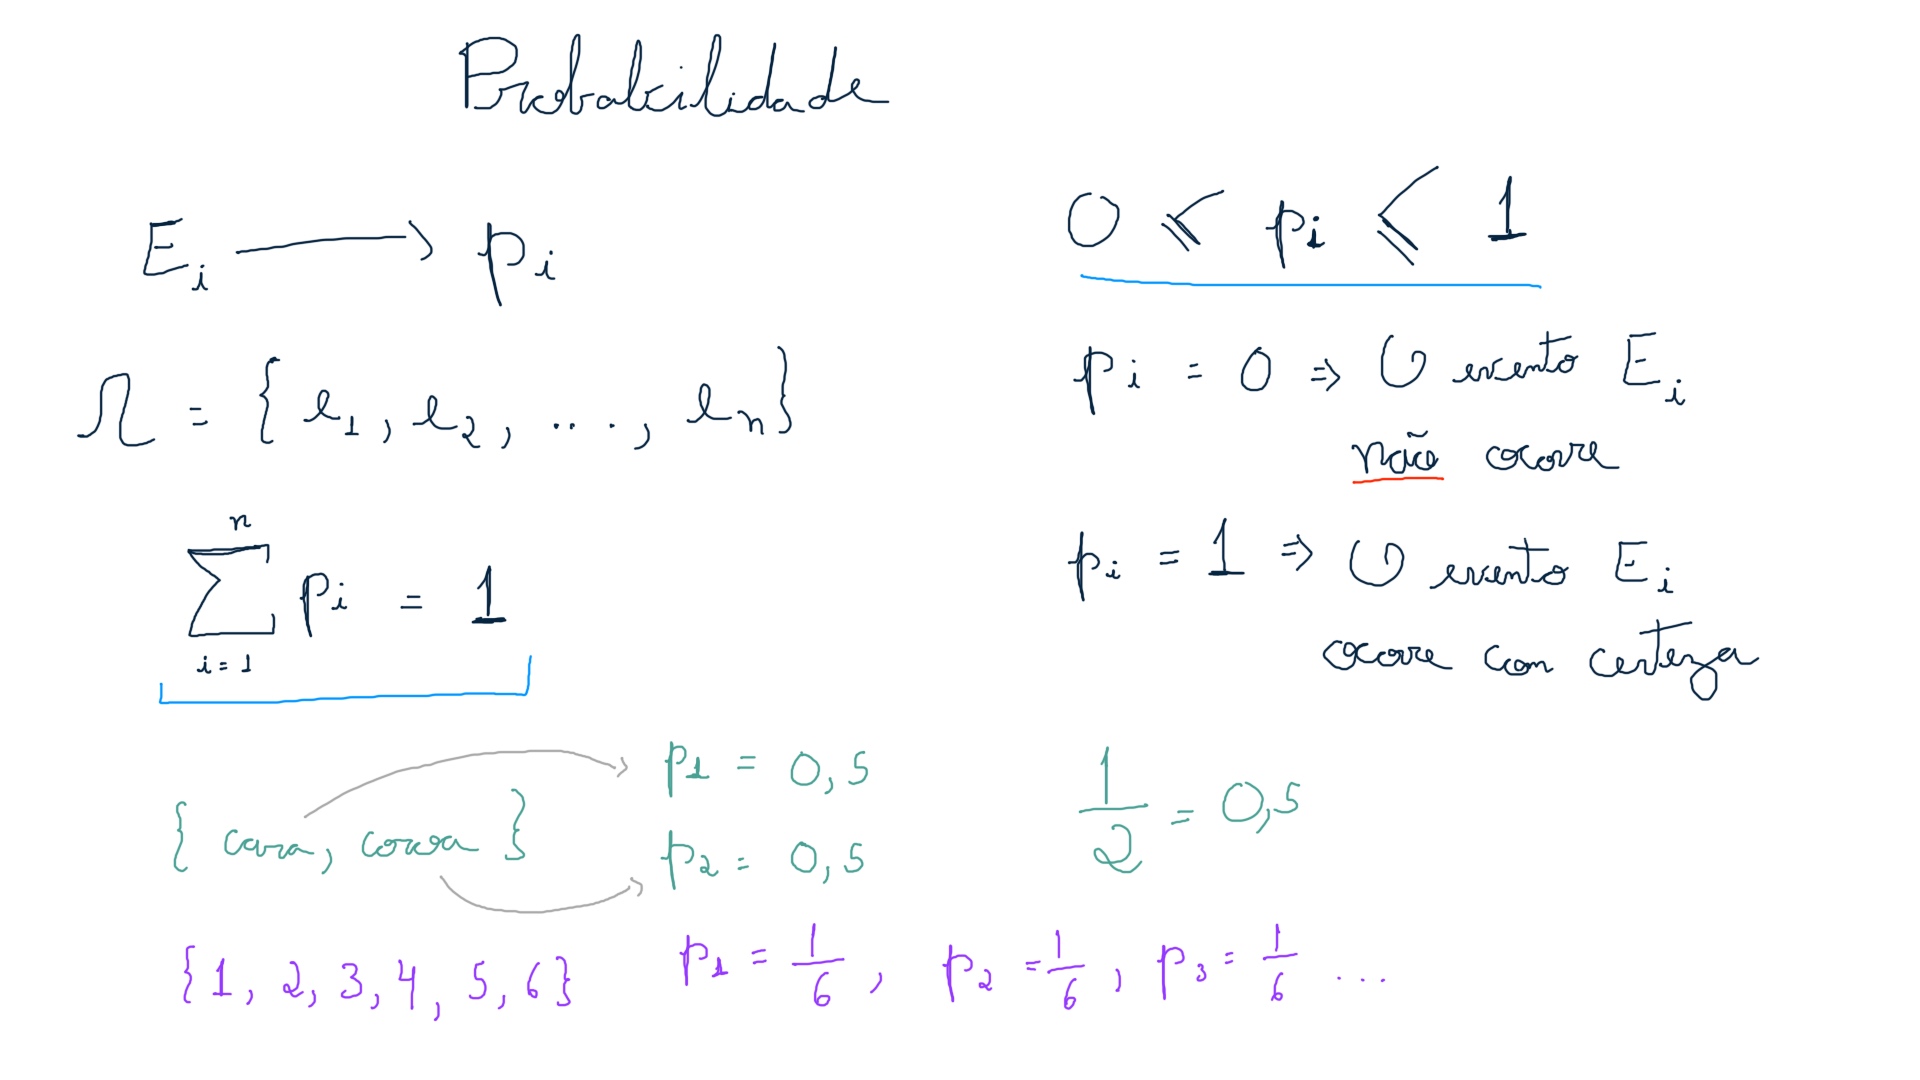 Probabilidade
E_i → p_i
Ω = { e_1, e_2, ...., e_n }
n
∑ p_i = 1
i = 1
0 ≤ p_i ≤ 1
p_i = 0 ⇒ O evento E_i
não ocorre
p_i = 1 ⇒ O evento E_i
ocorre com certeza
{ cara, coroa }
p_1 = 0,5
p_2 = 0,5
1/2 = 0,5
{1, 2, 3, 4, 5, 6} p_1 = 1/6, p_2 = 1/6, p_3 = 1/6 ...